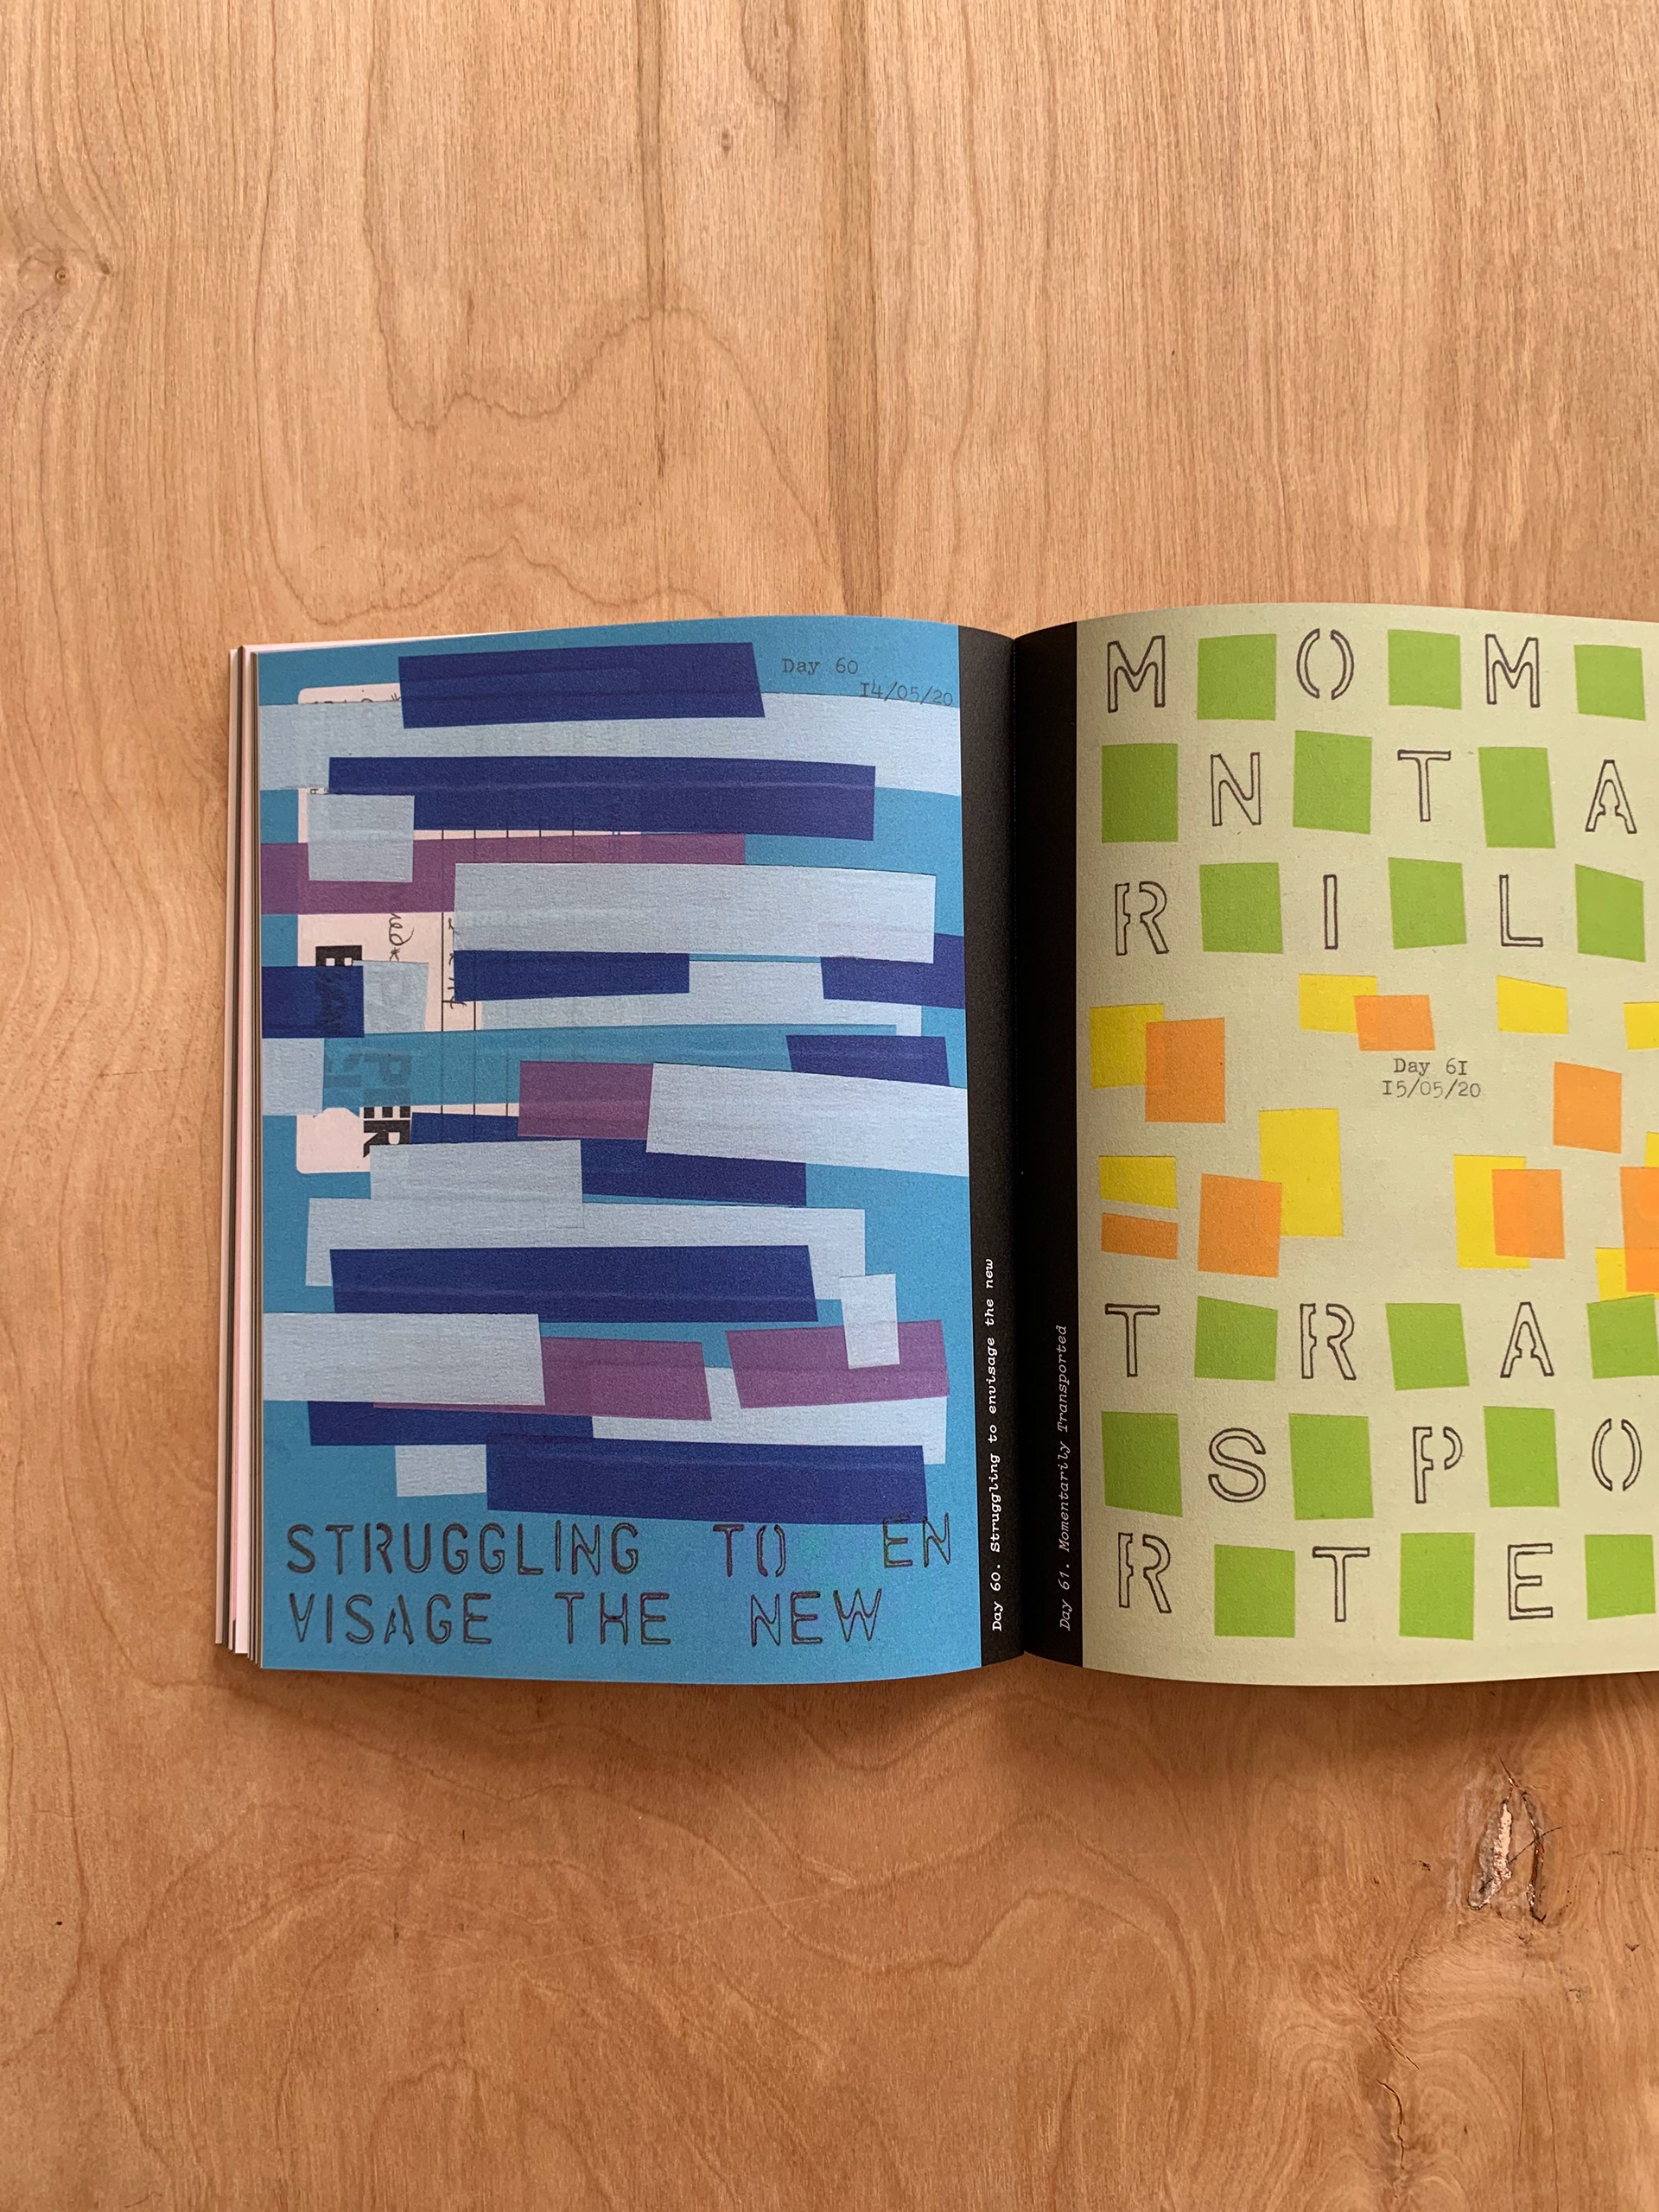 Day 60
14/05/20
PAPER
STRUGGLING TO EN
VISAGE THE NEW
Day 60. Struggling to envisage the new
Day 61. Momentarily Transported
M O M
N T A
R I L
Day 61
15/05/20
T R A
S P O
R T E